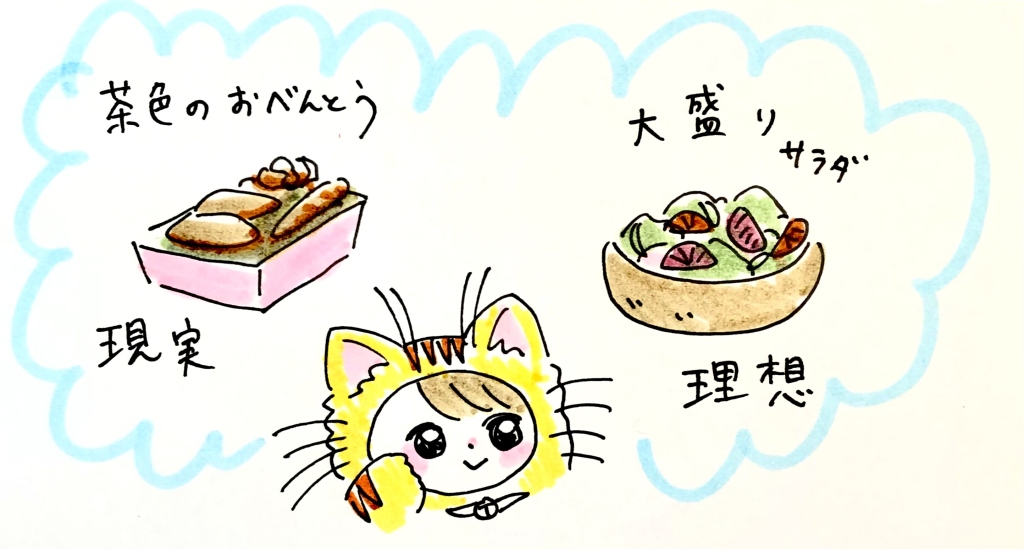 茶色のおべんとう
現実
大盛り
サラダ
理想